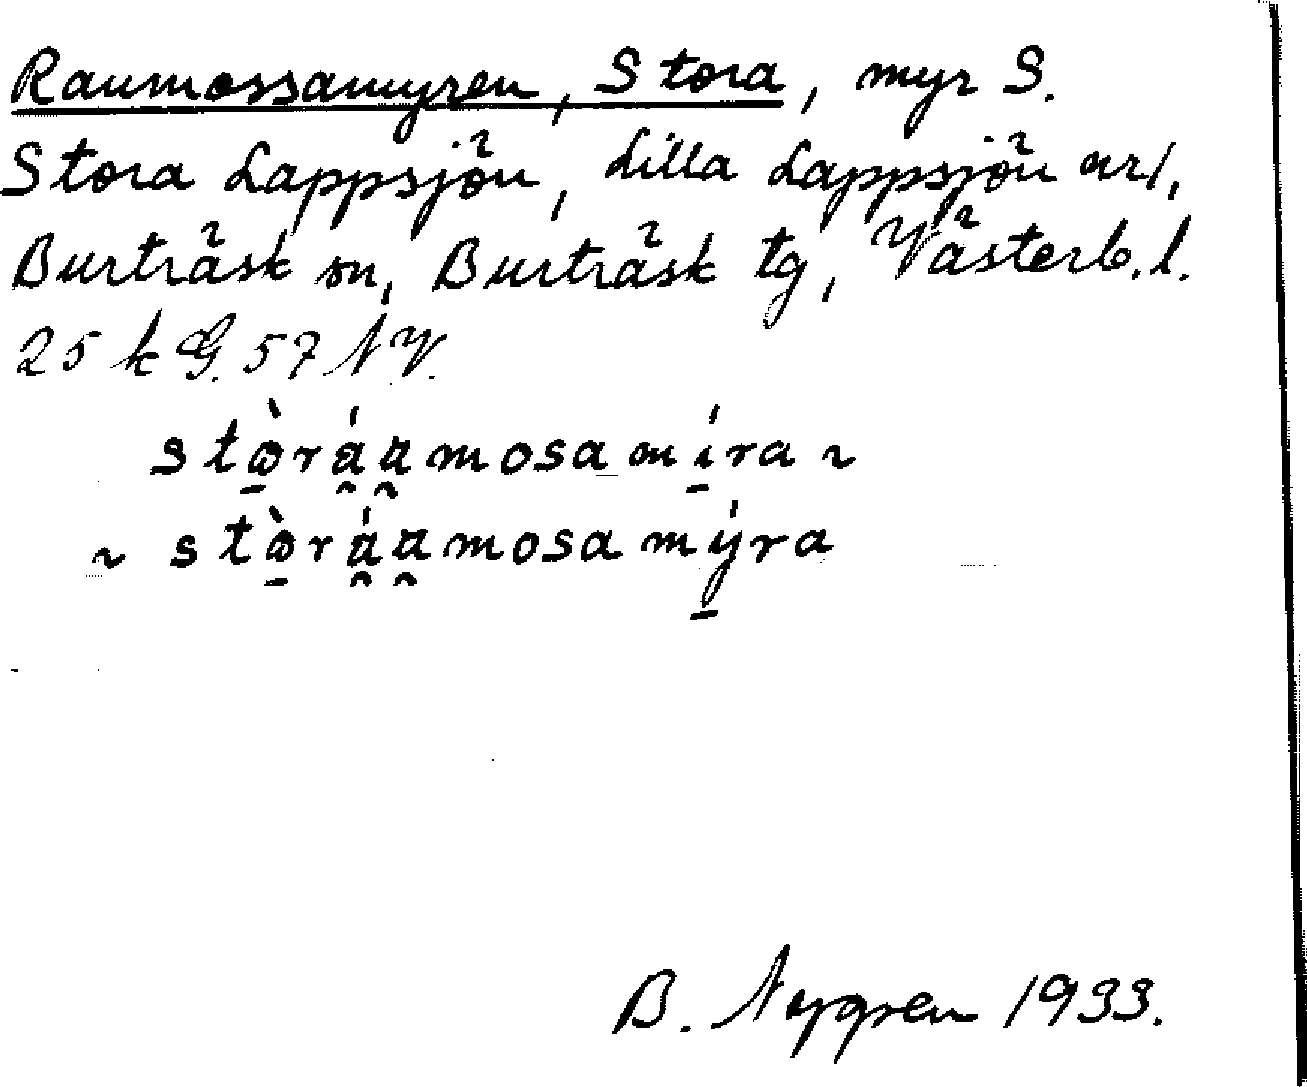 Raumossamyren, Stora, myr S.
Stora Lappsjön, Lilla Lappsjön nr 1,
Burträsk sn, Burträsk tg, Västerb. l.
25 k G. 57 NV.
stὼ̱rá̯a̯mosamí̱ra ~
~ stὼ̱rá̯a̯mosamý̱ra
B. Nygren 1933.